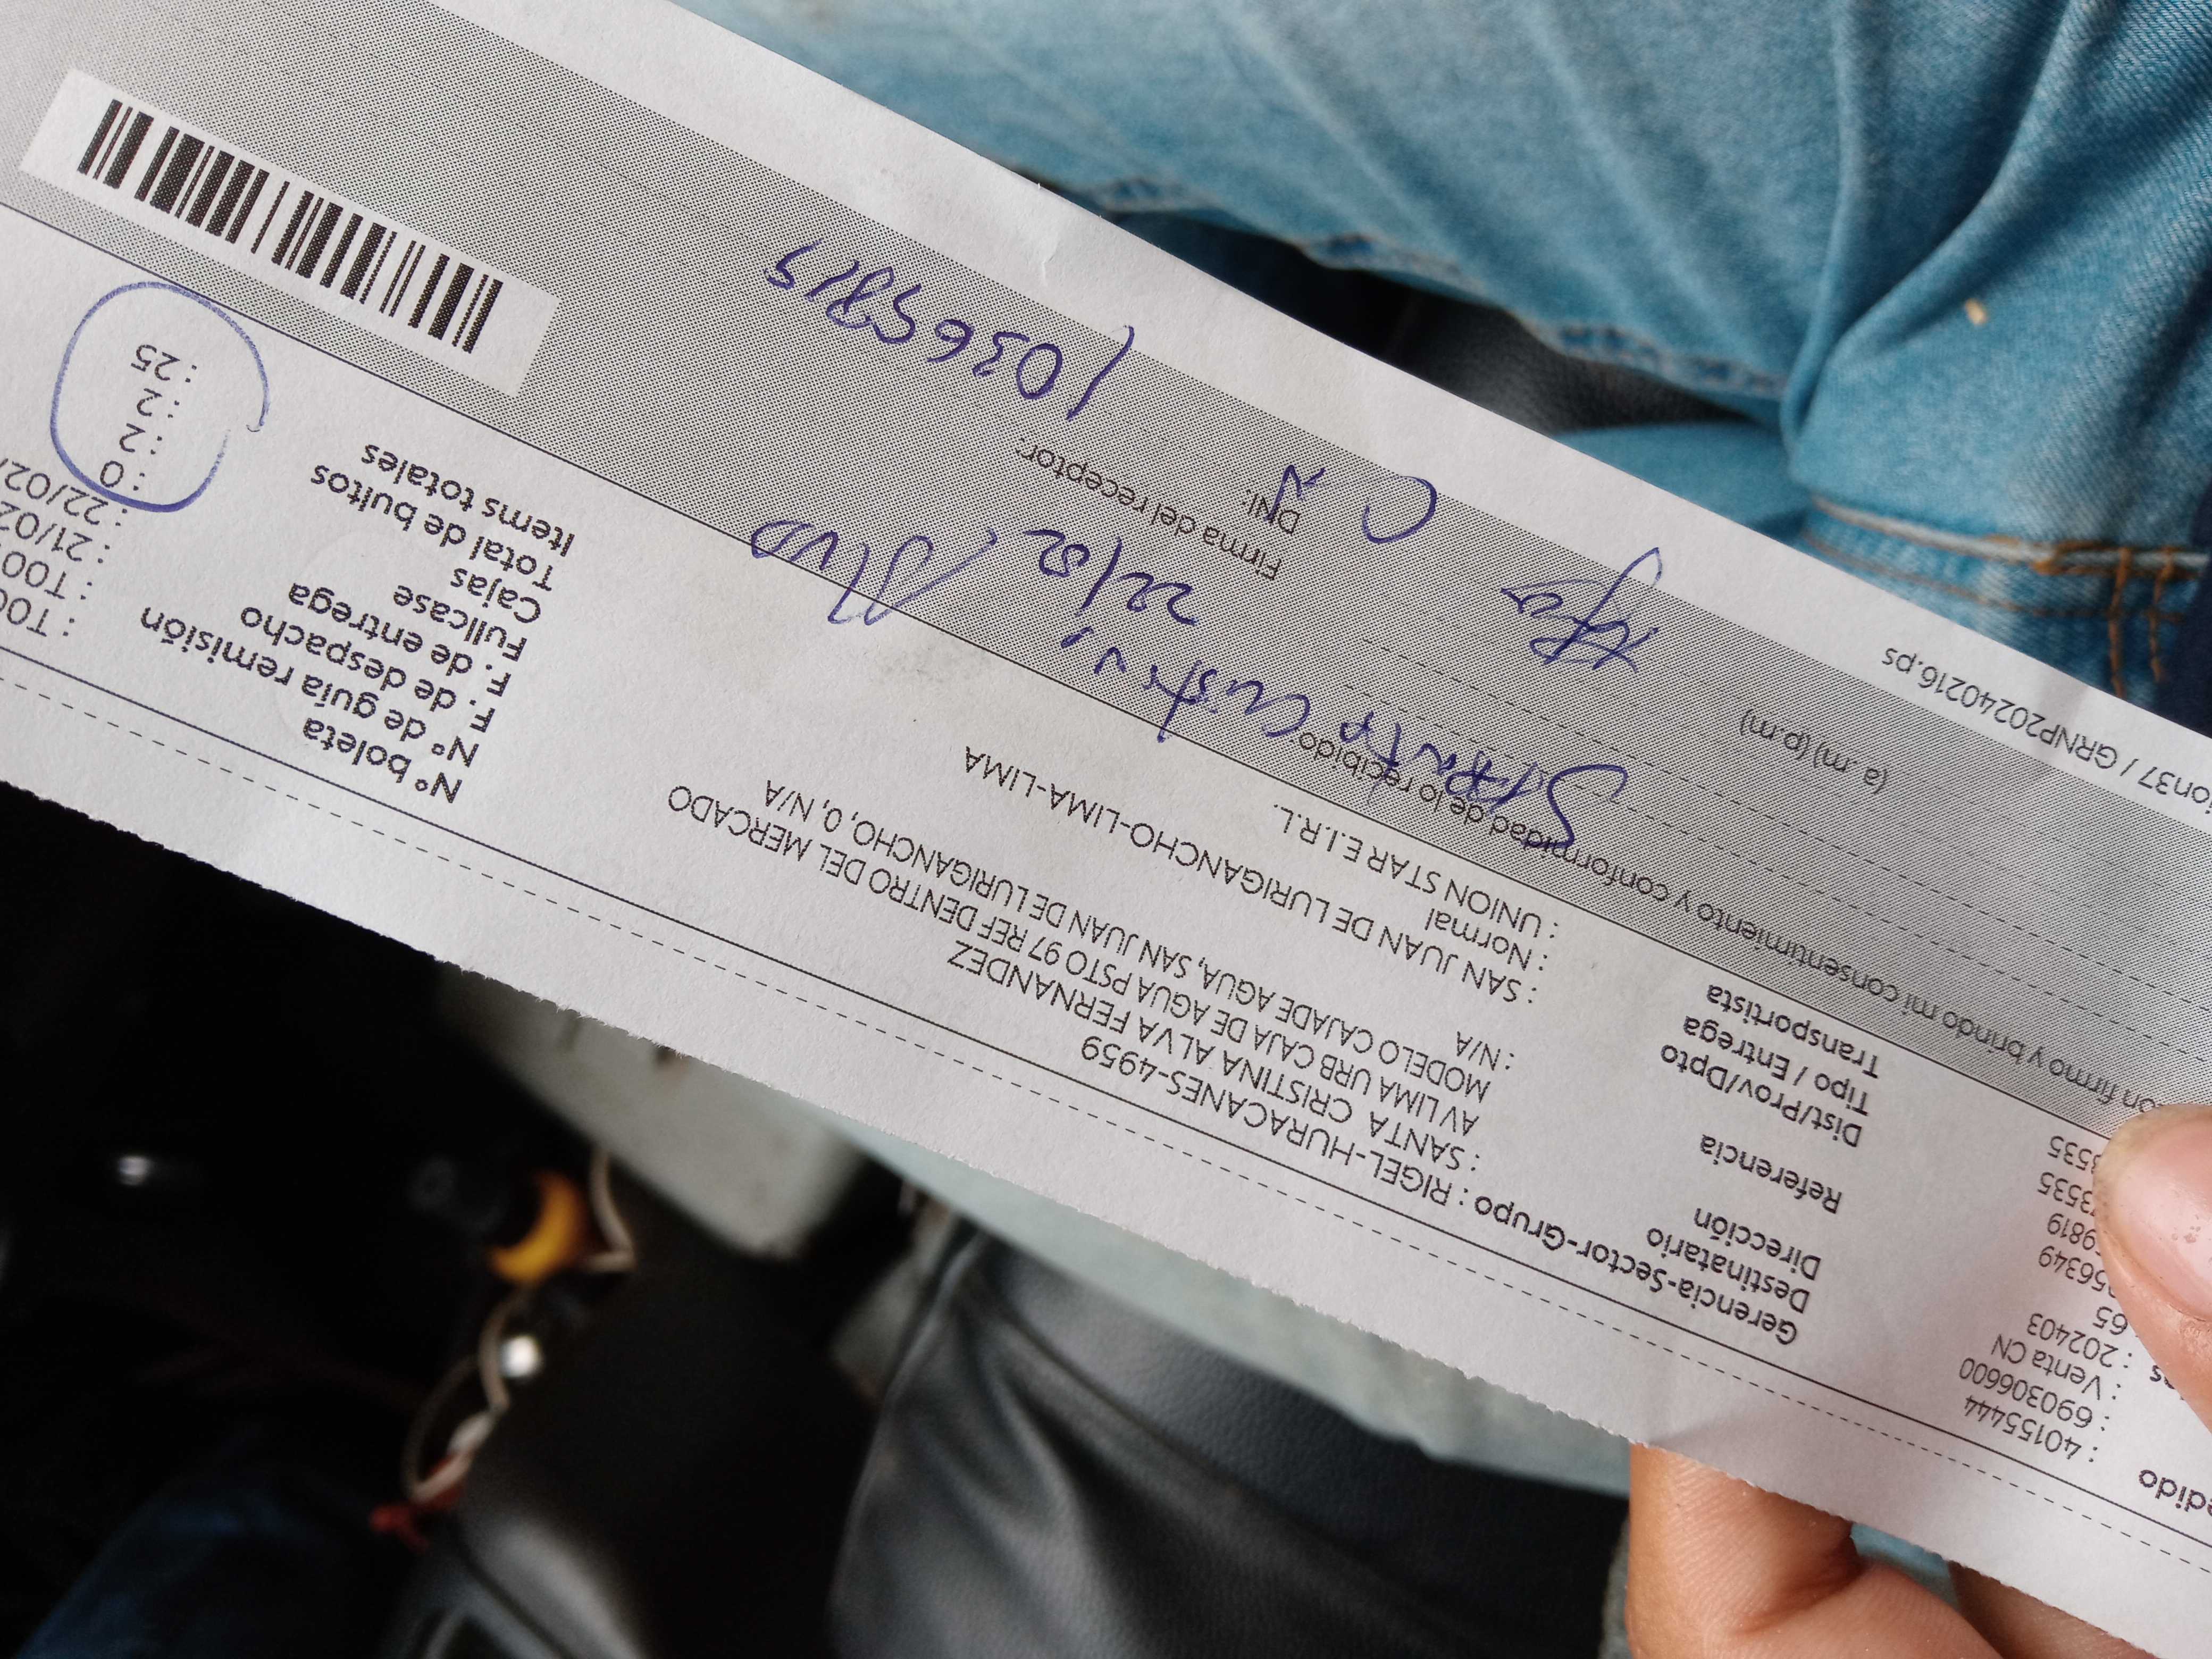 edido : 40155444
: 690306600
: Venta CN
as : 202403
65
056349
59819
73535
3535
Gerencia-Sector-Grupo : RIGEL-HURACANES-4959
Destinatario : SANTA CRISTINA ALVA FERNANDEZ
Dirección AV LIMA URB CAJA DE AGUA PSTO 97 REF DENTRO DEL MERCADO
MODELO CAJADE AGUA, SAN JUAN DE LURIGANCHO, 0, N/A
Referencia : N/A
Dist/Prov/Dpto : SAN JUAN DE LURIGANCHO-LIMA-LIMA
Tipo / Entrega : Normal
Transportista : UNION STAR E.I.R.L.
Nº boleta : T00
Nº de guía remisión : T00
F. de despacho : 21/02
F. de entrega : 22/02/
Fullcase : 0
Cajas : 2
Total de bultos : 2
Items totales : 25
ón firmo y brindo mi consentimiento y conformidad de lo recibido:
22/02
(a .m) (p.m)
Firma del receptor:
DNI:
10365819
ion37 / GRNP20240216.ps